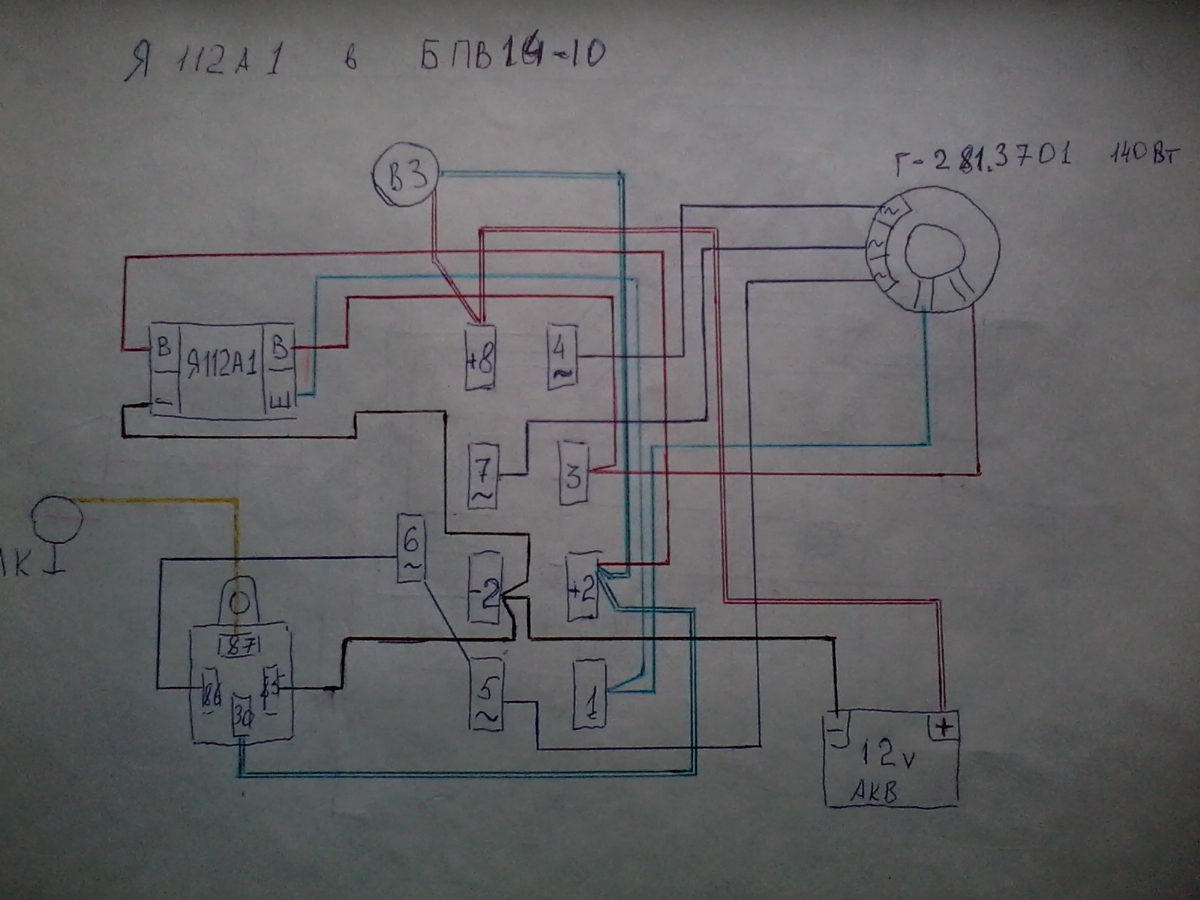 Я 112А1 в БПВ14-10
Г-281.3701 140Вт
ВЗ
~
~
~
В Я112А1 В
- Ш
+8
4
~
7
~
3
6
~
-2
+2
87
86
85
30
5
~
1
- +
12v
АКВ